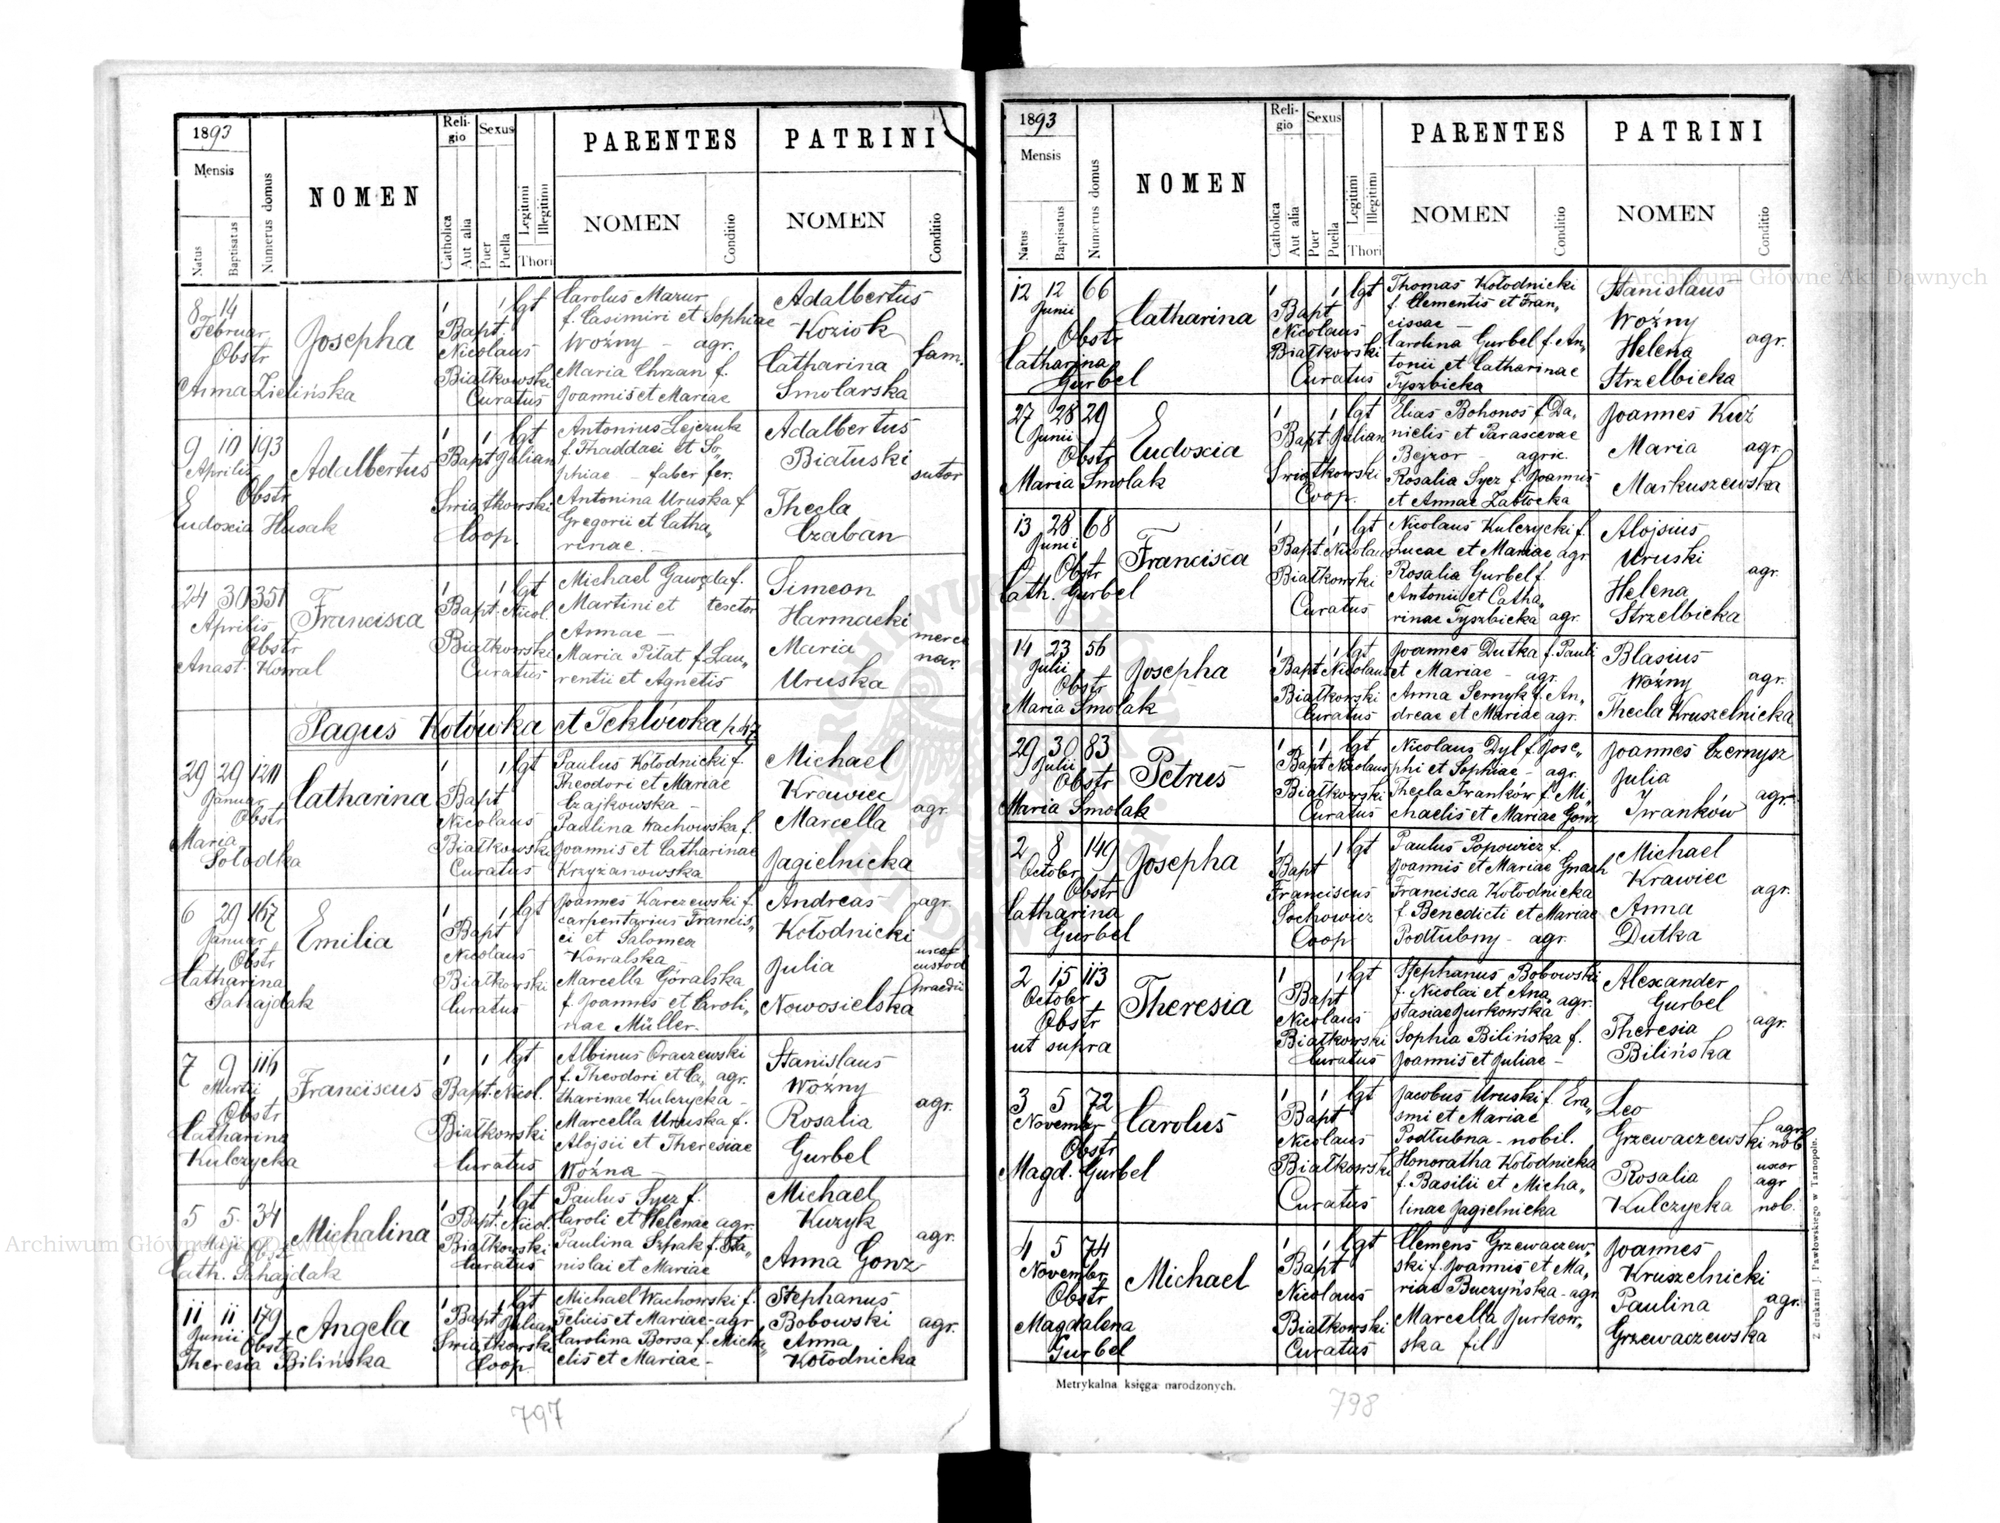 1893
Mensis
Natus
Baptisatus
Numerus domus
NOMEN
Religio
Catholica
Aut alia
Sexus
Puer
Puella
Legitimi
Illegitimi
Thori
PARENTES
NOMEN
Conditio
PATRINI
NOMEN
Conditio
8 14
Februar
Obstr
Anna Zielińska
Josepha
1 1 lgt
Bapt.
Nicolaus
Białkowski
Curatus
Carolus Mazur
f. Casimiri et Sophiae
Woźny - agr.
Maria Chrzan f.
Joannis et Mariae
Adalbertus
Koziok
Catharina
Smolarska
fam.
9 10 193
Aprilis
Obstr
Eudoxia Husak
Adalbertus
1 1 lgt
Bapt Julian
Swiątkowski
Coop.
Antonius Lejczuk
f. Thaddaei et So„
phiae - faber fer.
Antonina Uruska f
Gregorii et Catha„
rinae. -
Adalbertus
Białuski
Thecla
Czaban
sutor
24 30 351
Aprilis
Obstr
Anast. Kowal
Francisca
1 1 lgt
Bapt. Nicol.
Białkowski
Curatus
Michael Gawęda f.
Martini et textor
Annae -
Maria Piłat f. Lau„
rentii et Agnetis
Simeon
Harmacki
Maria
Uruska
merce
nar.
Pagus Kotówka et Teklówka
29 29
Januar
Obstr
Maria
Sołodka
Catharina
1 1 lgt
Bapt
Nicolaus
Białkowski
Curatus
Paulus Kołodnicki f.
Theodori et Mariae
Czajkowska -
Paulina Wachowska f.
Joannis et Catharinae
Krzyżanowska
Michael
Krawiec
Marcella
Jagielnicka
agr.
6 29 167
Januar
Obstr
Catharina
Sahajdak
Emilia
1 1 lgt
Bapt
Nicolaus
Białkowski
Curatus
Joannes Karczewski f.
carpentarius Francis„
ci et Salomea
Kowalska -
Marcella Góralska
f. Joannes et Caroli„
nae Müller.
Andreas
Kołodnicki
Julia
Nowosielska
agr.
uxor
custod
praedii
7 9 116
Martii
Obstr
Catharina
Kulczycka
Franciscus
1 1 lgt
Bapt. Nicol.
Białkowski
Curatus
Albinus Oraczewski
f. Theodori et Ca„ agr.
tharinae Kulczycka -
Marcella Uruska f.
Alojsii et Theresiae
Woźna -
Stanislaus
Woźny
Rosalia
Gurbel
agr.
5 5 34
Maji Obstr
Cath. Sahajdak
Michalina
1 lgt
Bapt. Nicol.
Białkowski
Curatus
Paulus Sycz f.
Caroli et Helenae agr.
Paulina Szpak f. Sta„
nislai et Mariae
Michael
Kuzyk
Anna Gonz
agr.
11 11 179
Junii
Obst.
Theresia Bilińska
Angela
1 1 lgt
Bapt. Julian
Swiątkowski
Coop.
Michael Wachowski f.
Felicis et Mariae - agr
Carolina Borsa f. Micha„
elis et Mariae -
Stephanus
Bobowski
Anna
Kołodnicka
agr.
797
1893
Mensis
Natus
Baptisatus
Numerus domus
NOMEN
Religio
Catholica
Aut alia
Sexus
Puer
Puella
Legitimi
Illegitimi
Thori
PARENTES
NOMEN
Conditio
PATRINI
NOMEN
Conditio
12 12 66
Junii
Obstr
Catharina
Gurbel
Catharina
1 1 lgt
Bapt
Nicolaus
Białkowski
Curatus
Thomas Kołodnicki
f. Clementis et Fran„
ciscae -
Carolina Gurbel f. An„
tonii et Catharinae
Tyszbicka
Stanislaus
Woźny
Helena
Strzelbicka
agr.
27 28 29
Junii
Obstr
Maria Smolak
Eudoxia
1 1 lgt
Bapt. Julian
Swiątkowski
Coop.
Elias Bohonos f. Da„
nielis et Parascevae
Bejzor - agric.
Rosalia Sycz f. Joannis
et Annae Zabłocka
Joannes Kuź
Maria
Markuszewska
agr.
13 28 68
Junii
Obstr
Cath. Gurbel
Francisca
1 1 lgt
Bapt. Nicolaus
Białkowski
Curatus
Nicolaus Kulczycki f.
Lucae et Mariae agr
Rosalia Gurbel f.
Antonii et Catha„
rinae Tyszbicka agr.
Alojsius
Uruski
Helena
Strzelbicka
agr.
14 23 56
Julii
Obstr
Maria Smolak
Josepha
1 1 lgt
Bapt Nicolaus
Białkowski
Curatus
Joannes Dutka f. Pauli
et Mariae - agr.
Anna Sernyk f. An„
dreae et Mariae agr.
Blasius
Woźny
Thecla Kruszelnicka
agr.
29 30 83
Julii
Obstr
Maria Smolak
Petrus
1 1 lgt
Bapt Nicolaus
Białkowski
Curatus
Nicolaus Dyl f. Jose„
phi et Sophiae - agr.
Thecla Iwanków f. Mi„
chaelis et Mariae Gonz
Joannes Czernysz
Julia
Iwanków
agr.
2 8 149
Octobr
Obstr
Catharina
Gurbel
Josepha
1 1 lgt
Bapt
Franciscus
Sochowicz
Coop
Paulus Popowicz f.
Joannis et Mariae Gnach
Francisca Kołodnicka
f. Benedicti et Mariae
Podłubny - agr.
Michael
Krawiec
Anna
Dutka
agr.
2 15 113
Octobr
Obstr
ut supra
Theresia
1 1 lgt
Bapt
Nicolaus
Białkowski
Curatus
Stephanus Bobowski
f. Nicolai et Ana„ agr.
stasiae Jurkowska
Sophia Bilińska f.
Joannis et Juliae -
Alexander
Gurbel
Theresia
Bilińska
agr.
3 5 72
Novembr
Obstr
Magd. Gurbel
Carolus
1 1 lgt
Bapt
Nicolaus
Białkowski
Curatus
Jacobus Uruski f. Era„
smi et Mariae
Podłubna - nobil.
Honoratha Kołodnicka
f. Basilii et Micha„
linae Jagielnicka
Leo
Grzewaczewski
Rosalia
Kulczycka
agr
nob
uxor
agr
nob.
4 5 74
Novembr
Obstr
Magdalena
Gurbel
Michael
1 1 lgt
Bapt
Nicolaus
Białkowski
Curatus
Clemens Grzewaczew„
ski f. Joannis et Ma„
riae Buczyńska - agr
Marcella Jurkow„
ska fil
Joannes
Kruszelnicki
Paulina
Grzewaczewska
agr.
Metrykalna księga narodzonych.
Z drukarni J. Pawłowskiego w Tarnopole.
798
Archiwum Główne Akt Dawnych
Archiwum Główne Akt Dawnych